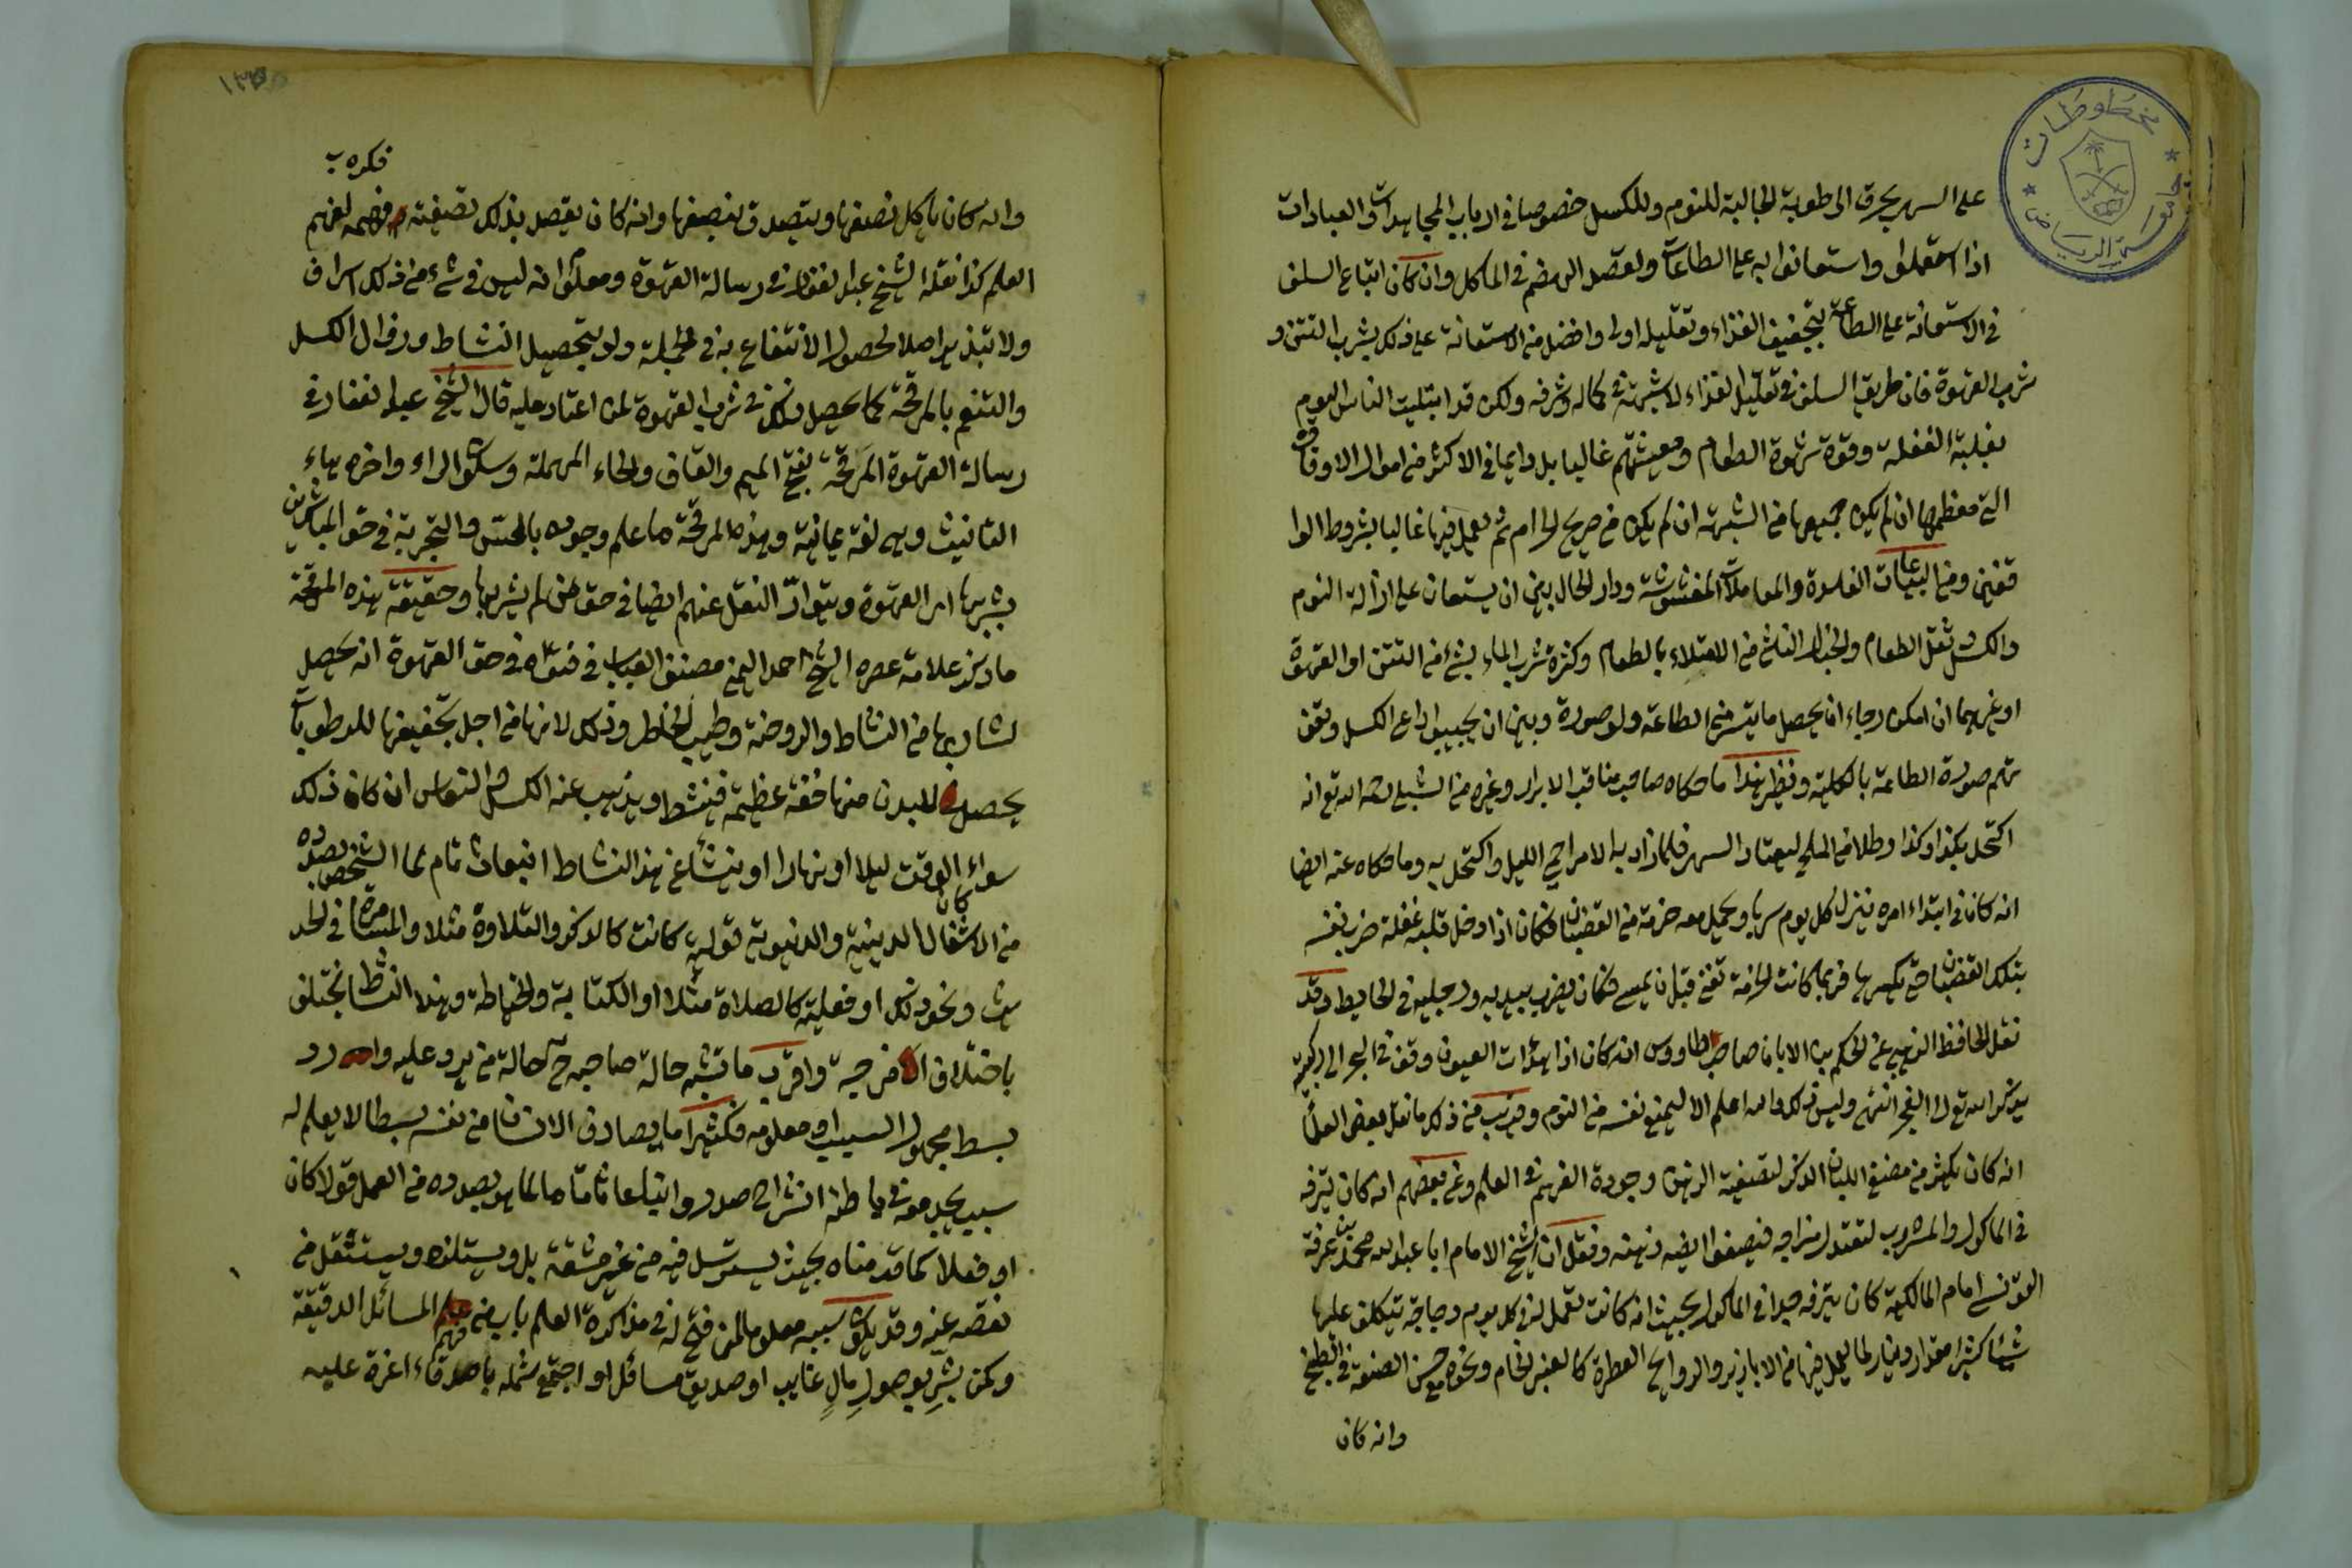 على السهر يحرق الرطوبة الجالبة للنوم وللكسل خصوصا في ارباب المجاهدات والعبادات
اذا استعملوا واستعانوا به على الطاعات ولقصد الهضم في الماكل وان كان اتباع السلف
في الاستعانة على الطاعة بتجفيف الغذاء وتقليله اولى وافضل من الاستعانة على ذلك بشرب التتن و
شرب القهوة فان طريق السلف في تقليل الغذاء لا شبهة في كماله وشرفه ولكن قد ابتليت الناس اليوم
بغلبة الغفلة وقوة شهوة الطعام ومعيشتهم غالبا بل دايما في الاكثر من اموال الاوقاف
التي معظمها ان لم يكن جميعها من الشبهة ان لم يكن من صريح الحرام ثم يعمل فيها غالبا بشروط الوا
قفين ومن البياعات الفاسدة والمعاملات المغشوشة ودار الحال بين ان يستعان على ازالة النوم
والكسل وثقل الطعام والبخار الناشئ من الامتلاء بالطعام وكثرة شرب الماء بشئ من التتن او القهوة
او غيرهما ان امكن رجاء ان يحصل ما يتيسر من الطاعة ولو صورة وبين ان يجيبوا داعي الكسل وتفو
تهم صورة الطاعة بالكلية ونظير هذا ما حكاه صاحب مناقب الابرار وغيره من الشبلي رحمه الله تع انه
اكتحل بكذا وكذا رطلا من الملح ليعتاد السهر فلما زاد به الامر احمى الميل واكتحل به وما حكاه عنه ايضا
انه كان في ابتداء امره ينزل كل يوم سربا ويحمل معه حزمة من القضبان فكان اذا دخل قلبه غفلة ضرب نفسه
بتلك القضبان حتى يكسرها فربما كانت الحزمة تفنى قبل ان يمسي فكان يضرب بيديه ورجليه في الحايط وقد
نقل الحافظ الذهبي عن الحكم بن ابان صاحب طاووس انه كان اذا هدأت العيون وقف في البحر الى ركبتيه
يذكر الله تع الى الفجر انتهى وليس ذلك والله اعلم الا ليمنع نفسه من النوم وقريب من ذلك ما نقل بعض العلماء
انه كان يكثر من مضغ اللبان الذكر لتصفية الذهن وجودة الفهم في العلم وعن بعضهم انه كان يترفه
في الماكول والمشروب لتعتدل مزاجه فيصفوا ايضا ذهنه ونقل ان الشيخ الامام ابا عبد الله محمد بن عرفة
التونسي امام المالكية كان يترفه جدا في الماكول بحيث انه كانت تعمل له في كل يوم دجاجة يتكلف عليها
شيئا كثيرا مقدار دينار لما يعمل فيها من الابازير والروايح العطرة كالعنبر الخام ونحوه مع حسن الصنعة في الطبخ
وانه كان
فكره ب
وانه كان ياكل نصفها ويتصدق بنصفها وانه كان يقصد بذلك تصفية فهمه لفهم
العلم كذا نقله الشيخ عبد الغفار في رسالة القهوة ومعلوم انه ليس في شئ من ذلك اسراف
ولا تبذير اصلا لحصول الانتفاع به في الجملة ولو بتحصيل النشاط وزوال الكسل
والتنعم بالمرقحة كما يحصل ذلك في شرب القهوة لمن اعتاد عليه قال الشيخ عبد الغفار في
رسالة القهوة المرقحة بفتح الميم والقاف والحاء المهملة وسكون الراء واخره هاء
التانيث وهي لغة يمانية وهذه المرقحة ما علم وجوده بالحس والتجربة في حق المباشرين
بشربها اي القهوة ويتواتر النقل عنهم ايضا في حق من لم يشربها وحقيقة هذه المرقحة
ما ذكر علامة عصره الشيخ احمد اليمني مصنف العباب في فتواه في حق القهوة انه يحصل
لشاربها من النشاط والروحنة وطيب الخاطر وذلك لانها من اجل تجفيفها للرطوبات
يحصل للبدن منها خفة عظيمة فينشط ويذهب عنه الكسل والنعاس ان كان ذلك
سواء كان الوقت ليلا او نهارا او ينشأ عن هذا النشاط انبعاث تام لما الشخص بصدده
من الاشغال الدينية والدنيوية قولية كانت كالذكر والتلاوة مثلا والمسامرة في الحد
يث ونحو ذلك او فعلية كالصلاة مثلا او الكتابة والخياطة وهذا النشاط يختلف
باختلاف الامزجة واقرب ما تشبه حالة صاحبه ح حالة من يرد عليه وارد
بسط مجهول السبب او معلومه فكثيرا ما يصادف الانسان من نفسه بسطا لا يعلم له
سبب يجد معه في باطنه انشراح صدر وانبعاثا تاما لما هو بصدده من العمل قولا كان
او فعلا كما قدمناه بحيث يسترسل فيه من غير مشقة بل ويستلذه ويستثقل من
نغصه عنه وقد يكون سببه معلوما لمن فتح له في مذاكرة العلم باب من فهم المسائل الدقيقة
وكمن بشر بوصول مال غايب او صديق مسافر او اجتمع شمله باصدقاء اعزة عليه
مخطوطات
جامعة الرياض